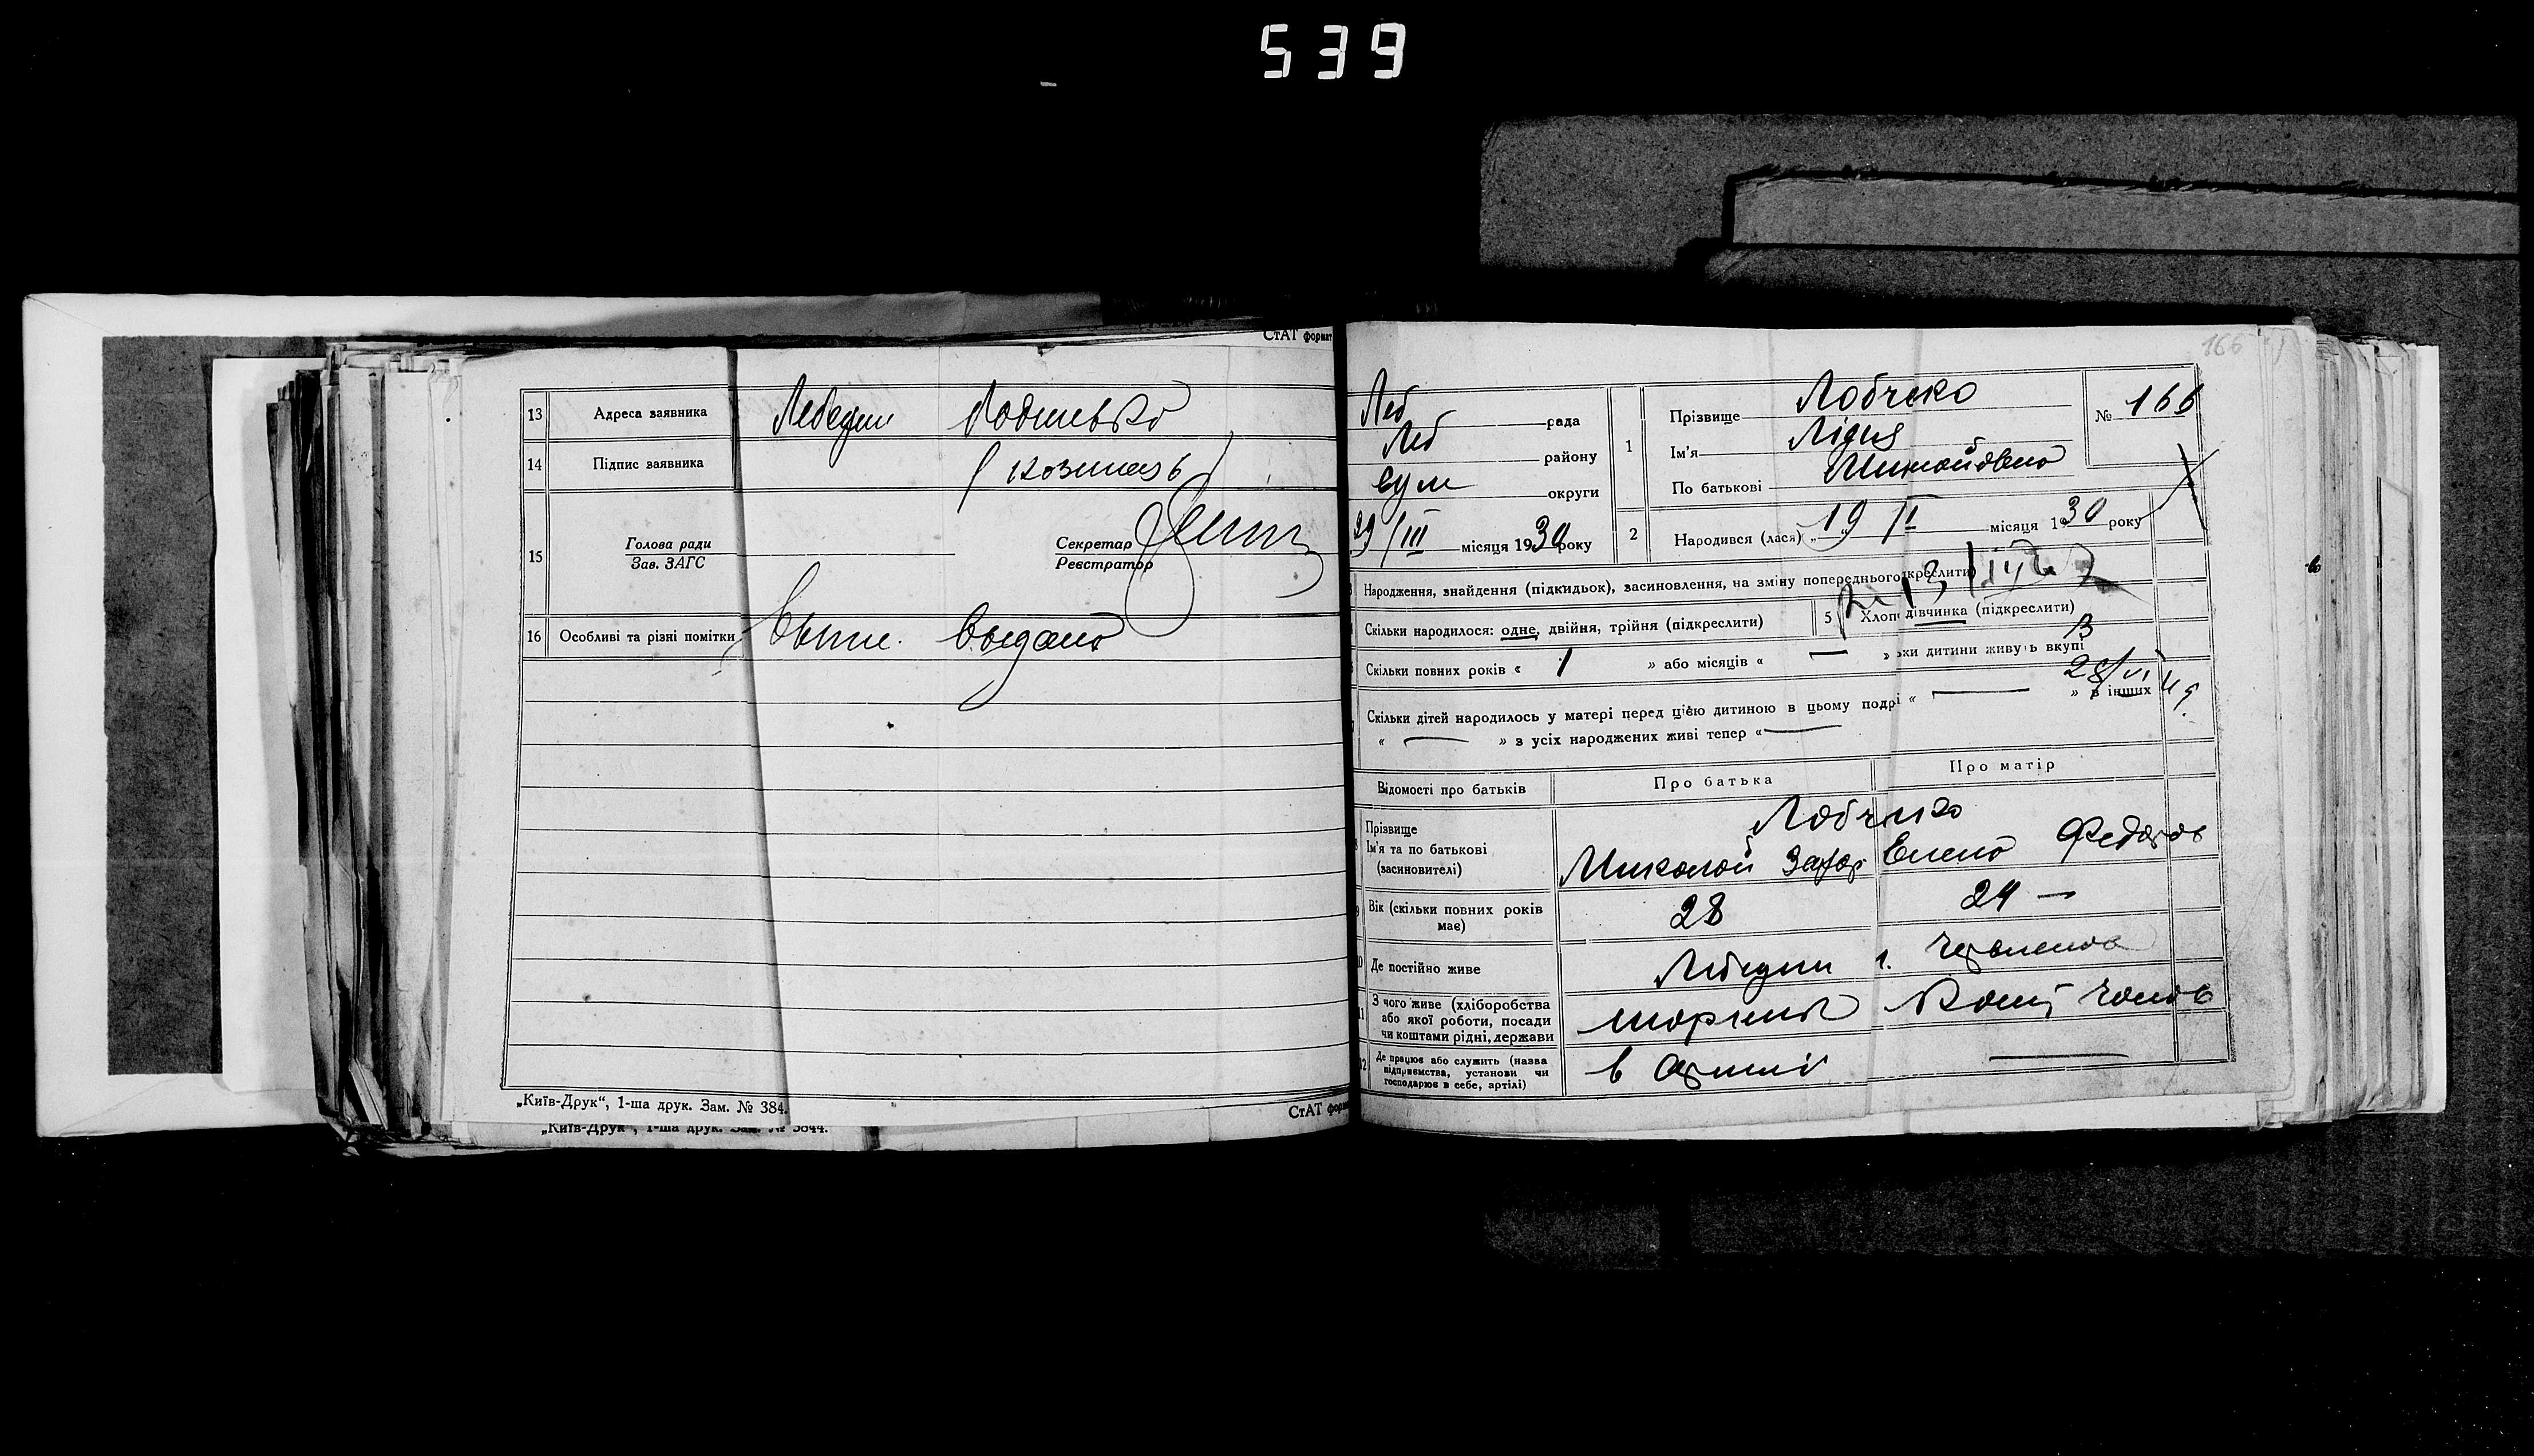 539
СтАТ формат
13 Адреса заявника Лебедин
14 Підпис заявника
15 Голова ради
Зав. ЗАГС
Секретар
Реєстратор
16 Особливі та різні помітки Выпис. Выдано
„Київ-Друк“, 1-ша друк. Зам. № 384.
СтАТ форм
„Київ-Друк“, 1-ша друк. Зам. № 3844.
166
Леб рада
Леб району
Сум округи
29/III місяця 1930 року
1 Прізвище
Ім'я Лідия
По батькові
№ 166
2 Народився (лася) „19 II місяця 1930 року
Народження, знайдення (підкидьок), засиновлення, на зміну попереднього
Скільки народилося: одне, двійня, трійня (підкреслити)
5 Хлоп дівчинка (підкреслити)
Скільки повних років « 1 » або місяців « — » ки дитини живуть вкупі
28/VI
Скільки дітей народилось у матері перед цією дитиною в цьому подрі « — » в інших
« — » з усіх народжених живі тепер « —
Відомості про батьків Про батька Про матір
Прізвище
Ім'я та по батькові
(засиновителі)
Миколай Захар Елена Федоров
Вік (скільки повних років має) 28 24 —
Де постійно живе Лебедин
З чого живе (хліборобства
або якої роботи, посади
чи коштами рідні, держави
Де працює або служить (назва
підприємства, установи чи
господарює в себе, артілі)
в Армии —